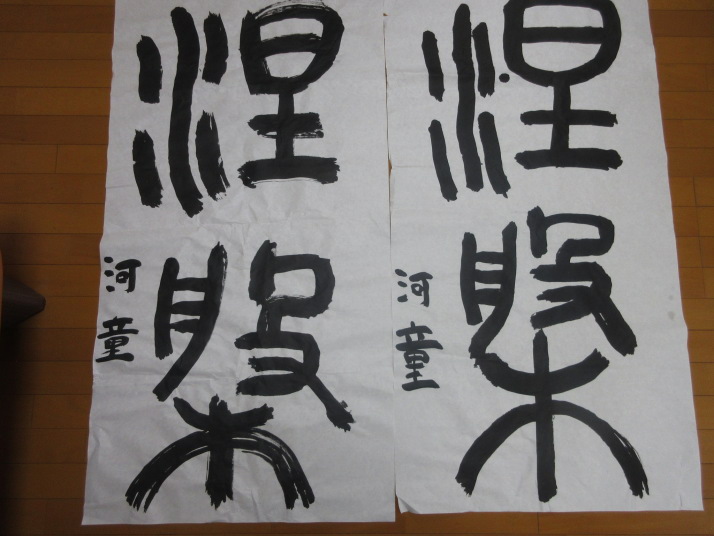 涅槃
河童
涅槃
河童